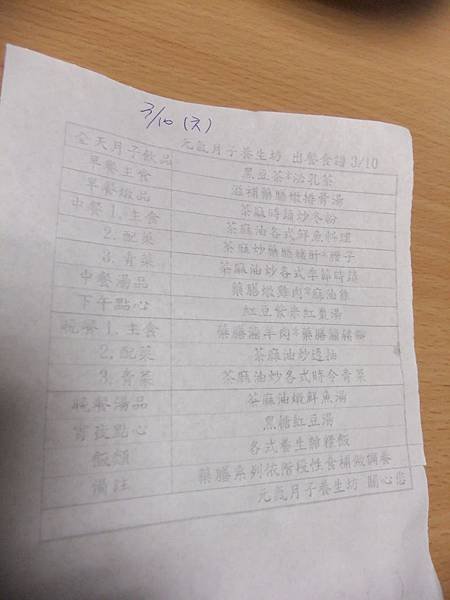 3/10 (天)
元氣月子養生坊 出餐食譜 3/10
全天月子飲品 黑豆茶+泌乳茶
早餐主食 滋補藥膳燉排骨湯
早餐燉品 茶麻時蔬炒冬粉
中餐 1. 主食 茶麻油各式鮮魚料理
2. 配菜 茶麻炒藥膳豬肝+腰子
3. 青菜 茶麻油炒各式季節時蔬
中餐湯品 藥膳燉雞肉+麻油雞
下午點心 紅豆紫米紅棗湯
晚餐 1. 主食 藥膳滷羊肉+藥膳滷豬
2. 配菜 茶麻油炒
3. 青菜 茶麻油炒各式時令青菜
晚餐湯品 茶麻油燉鮮魚湯
宵夜點心 黑糖紅豆湯
飯類 各式養生雜糧飯
備註 藥膳系列依階段性食補做調養
元氣月子養生坊 關心您